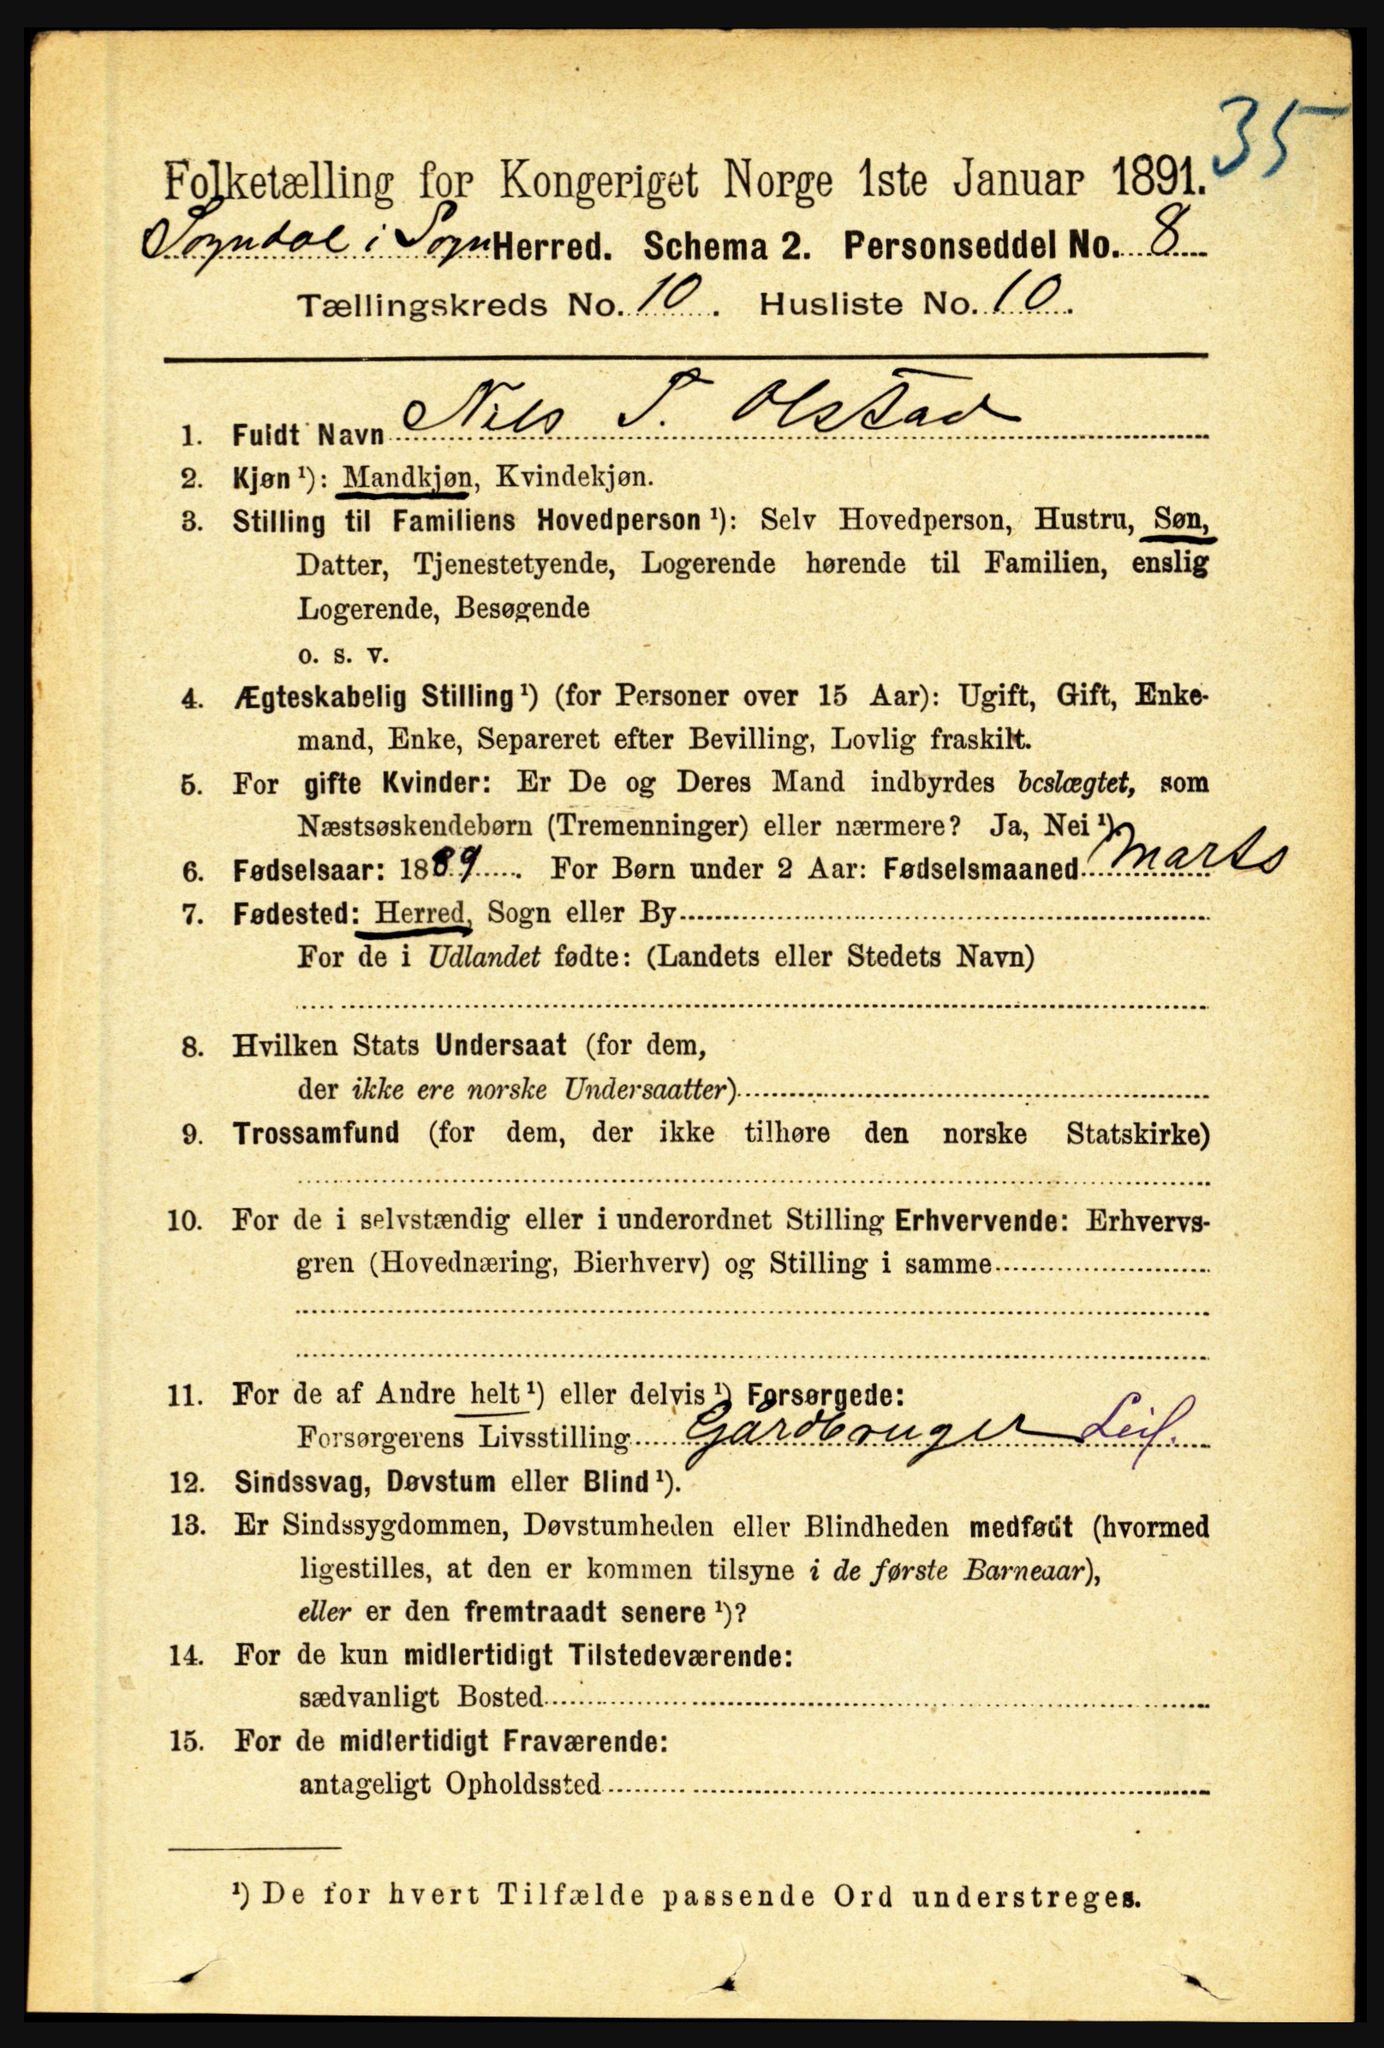 35
Folketælling for Kongeriget Norge 1ste Januar 1891.
Sogndal i Sogn Herred. Schema 2. Personseddel No. 8
Tællingskreds No. 10. Husliste No. 10.
1. Fuldt Navn Nils T. Olstad
2. Kjøn ¹): Mandkjøn, Kvindekjøn.
3. Stilling til Familiens Hovedperson ¹): Selv Hovedperson, Hustru, Søn,
Datter, Tjenestetyende, Logerende hørende til Familien, enslig
Logerende, Besøgende
o. s. v.
4. Ægteskabelig Stilling ¹) (for Personer over 15 Aar): Ugift, Gift, Enke-
mand, Enke, Separeret efter Bevilling, Lovlig fraskilt.
5. For gifte Kvinder: Er De og Deres Mand indbyrdes beslægtet, som
Næstsøskendebørn (Tremenninger) eller nærmere? Ja, Nei ¹).
6. Fødselsaar: 1889. For Børn under 2 Aar: Fødselsmaaned Marts
7. Fødested: Herred, Sogn eller By
For de i Udlandet fødte: (Landets eller Stedets Navn)
8. Hvilken Stats Undersaat (for dem,
der ikke ere norske Undersaatter)
9. Trossamfund (for dem, der ikke tilhøre den norske Statskirke)
10. For de i selvstændig eller i underordnet Stilling Erhvervende: Erhvervs-
gren (Hovednæring, Bierhverv) og Stilling i samme
11. For de af Andre helt ¹) eller delvis ¹) Forsørgede:
Forsørgerens Livsstilling Gårdbruger Leil.
12. Sindssvag, Døvstum eller Blind ¹).
13. Er Sindssygdommen, Døvstumheden eller Blindheden medfødt (hvormed
ligestilles, at den er kommen tilsyne i de første Barneaar),
eller er den fremtraadt senere ¹)?
14. For de kun midlertidigt Tilstedeværende:
sædvanligt Bosted
15. For de midlertidigt Fraværende:
antageligt Opholdssted
¹) De for hvert Tilfælde passende Ord understreges.